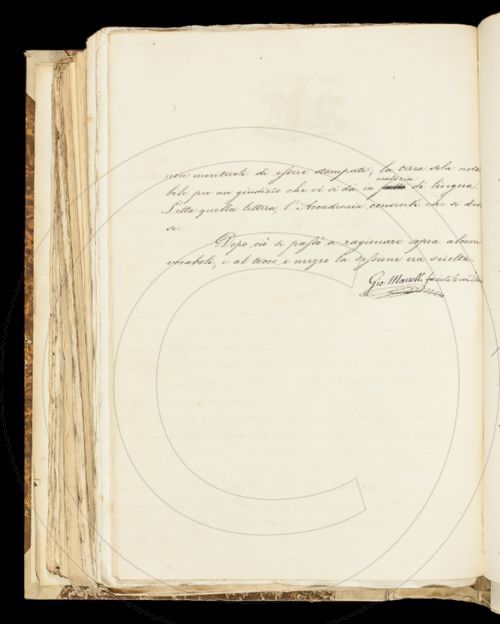 non meritevoli di essere stampate; la terza sola nota
bile per un giudizio che vi si dà in materia di lingua.
Letta quella lettera, l'Accademia consentì che si des
se.
Dopo ciò si passò a ragionare sopra alcuni
vocaboli, e al tocco e mezzo la sessione era sciolta.
Gio. Masselli facente le veci